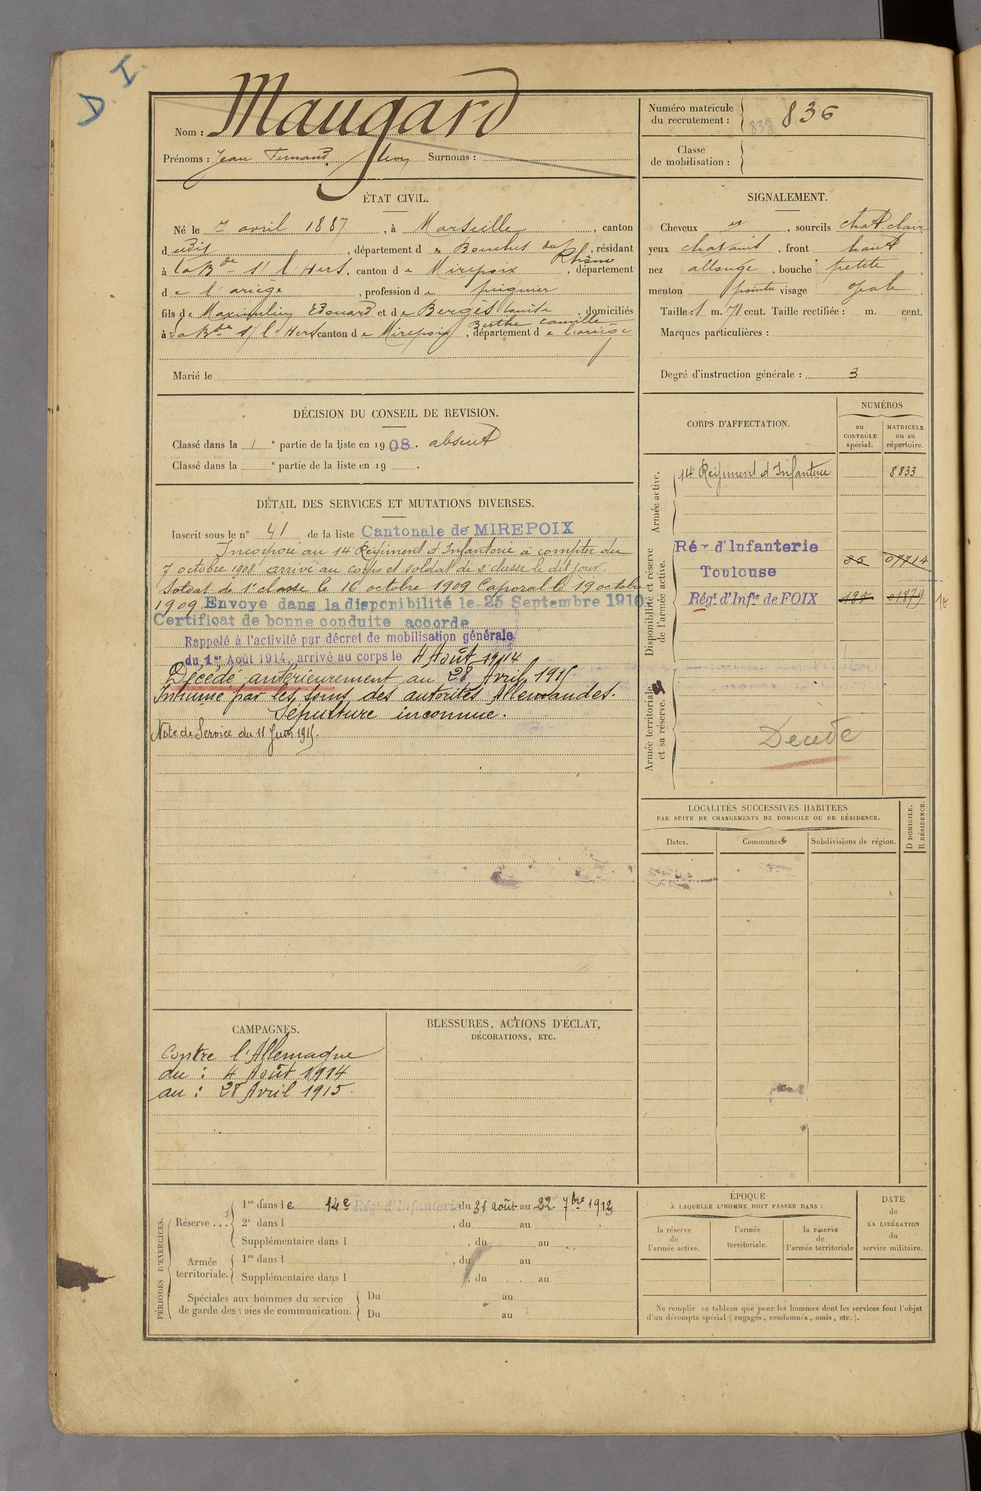 D. I.
Nom : Maugard
Prénoms : Jean Fernand Léon Surnoms :
Numéro matricule du recrutement : 838 836
Classe de mobilisation :
ÉTAT CIVIL.
Né le 7 avril 1887, à Marseille, canton
d udit, département d es Bouches du Rhône, résidant
à la Bde s/ l'Hers, canton d e Mirepoix, département
d e l'ariège, profession d e peignier
fils d e Maximilien Edouard et d e Bergès Louise Berthe Camille, domiciliés
à La Bde s/ l'Hers canton d e Mirepoix, département d e l'ariège
Marié le
SIGNALEMENT.
Cheveux et, sourcils chat. clair
yeux chatains, front haut,
nez allongé, bouche petite,
menton pointu visage ovale
Taille 1 m. 71 cent. Taille rectifiée : m. cent.
Marques particulières :
Degré d'instruction générale : 3
DÉCISION DU CONSEIL DE REVISION.
Classé dans la 1e partie de la liste en 1908. absent
Classé dans la e partie de la liste en 19 .
DÉTAIL DES SERVICES ET MUTATIONS DIVERSES.
Inscrit sous le n° 41 de la liste Cantonale de MIREPOIX
Incorporé au 14 Régiment d'Infanterie à compter du
7 octobre 1908 arrivé au corps et soldat de 2e classe le dit jour.
Soldat de 1re classe le 16 octobre 1909 Caporal le 19 octobre
1909 Envoyé dans la disponibilité le 25 Septembre 1910.
Certificat de bonne conduite accordé
Rappelé à l'activité par décret de mobilisation générale
du 1er Août 1914, arrivé au corps le 4 Août 1914
Décédé antérieurement au 28 Avril 1915
Inhumé par les soins des autorités Allemandes.
Sépulture inconnue.
Note de Service du 11 Juin 1915.
CORPS D'AFFECTATION.
NUMÉROS
au CONTRÔLE spécial.
MATRICULE ou au répertoire.
Armée active.
14e Régiment d'Infanterie 8833
Disponibilité et réserve de l'armée active.
Rég. d'Infanterie
Toulouse
Régt d'Infie de FOIX
Armée territoriale et sa réserve.
Décédé
LOCALITÉS SUCCESSIVES HABITÉES
PAR SUITE DE CHANGEMENTS DE DOMICILE OU DE RÉSIDENCE.
Dates. Communes. Subdivisions de région. D DOMICILE. R RÉSIDENCE.
CAMPAGNES.
Contre l'Allemagne
du : 4 Août 1914
au : 28 Avril 1915.
BLESSURES, ACTIONS D'ÉCLAT,
DÉCORATIONS, ETC.
PÉRIODES D'EXERCICES.
Réserve ...
1re dans le 14e Régt d'Infanterie, du 31 août au 22 7bre 1913
2e dans l , du au
Supplémentaire dans l , du au
Armée territoriale.
1re dans l , du au
Supplémentaire dans l , du au
Spéciales aux hommes du service de garde des voies de communication.
Du au
Du au
ÉPOQUE
À LAQUELLE L'HOMME DOIT PASSER DANS :
la réserve de l'armée active.
l'armée territoriale.
la réserve de l'armée territoriale
DATE DE LA LIBÉRATION du service militaire.
Ne remplir ce tableau que pour les hommes dont les services font l'objet
d'un décompte spécial (engagés, condamnés, omis, etc.).